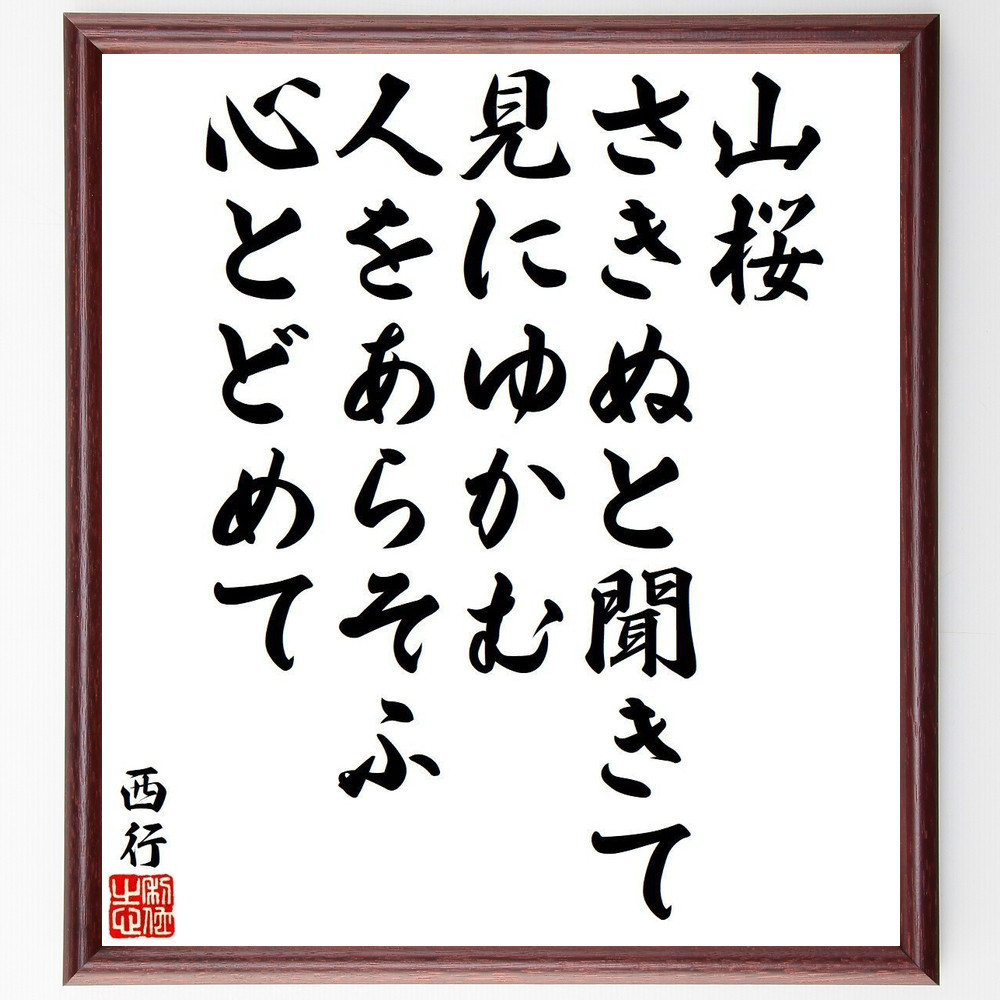 山桜
さきぬと聞きて
見にゆかむ
人をあらそふ
心とどめて
西行